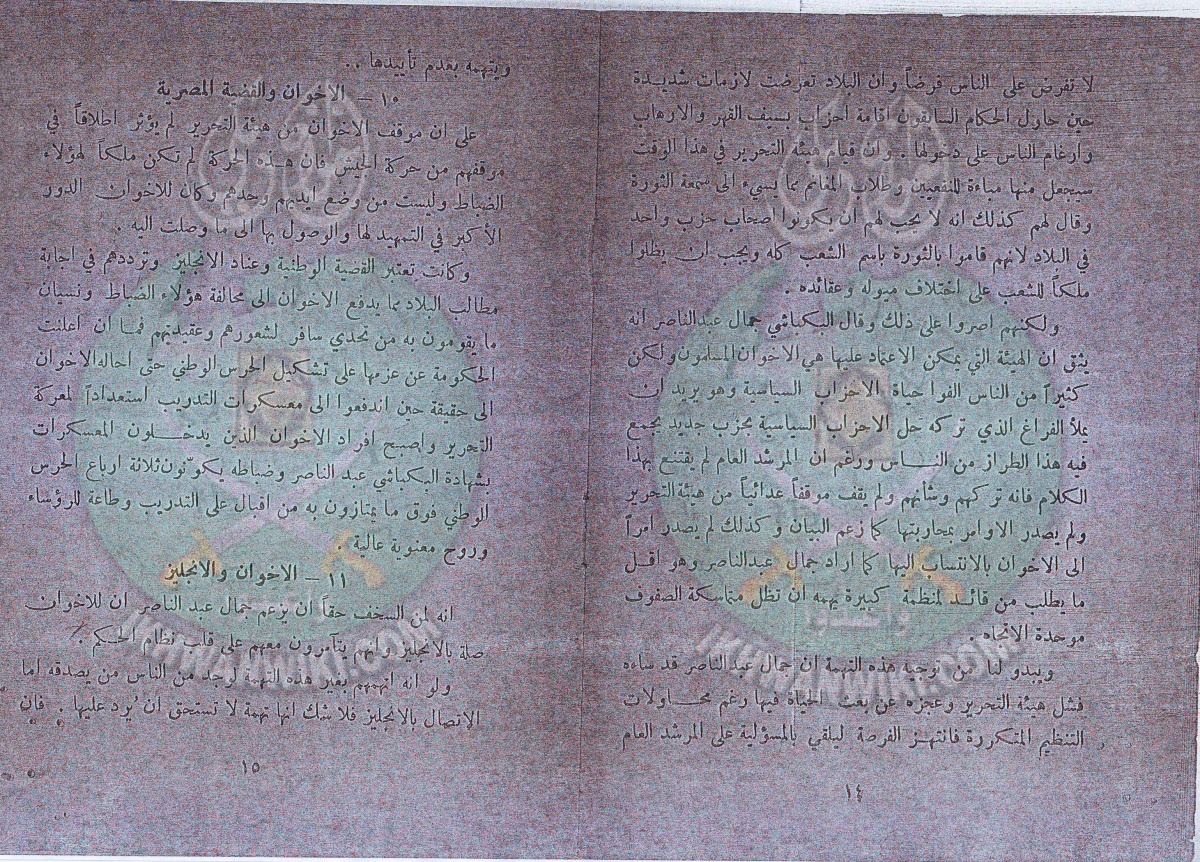 لا تفرض على الناس فرضاً وان البلاد تعرضت لازمات شديدة
حين حاول الحكام السابقون اقامة أحزاب بسيف القهر والارهاب
وارغام الناس على دخولها .. وان قيام هيئة التحرير في هذا الوقت
سيجعل منها مباءة للنفعيين وطلاب المغانم مما يسيء الى سمعة الثورة
وقال لهم كذلك انه لا يجب لهم ان يكونوا اصحاب حزب واحد
في البلاد لانهم قاموا بالثورة باسم الشعب كله ويجب ان يظلوا
ملكاً للشعب على اختلاف ميوله وعقائده .
ولكنهم اصروا على ذلك وقال البكباشي جمال عبدالناصر انه
يثق ان الهيئة التي يمكن الاعتماد عليها هي الاخوان المسلمون ولكن
كثيراً من الناس الفوا حياة الاحزاب السياسية وهو يريد ان
يملأ الفراغ الذي تركه حل الاحزاب السياسية بحزب جديد يجمع
فيه هذا الطراز من النـاس ورغم ان المرشد العام لم يقتنع بهذا
الكلام فانه تركهم وشأنهم ولم يقف موقفاً عدائياً من هيئة التحرير
ولم يصدر الاوامر بمحاربتها كما زعم البيان وكذلك لم يصدر امراً
الى الاخوان بالانتساب اليها كما اراد جمال عبدالناصر وهو اقل
ما يطلب من قائد لمنظمة كبيرة يهمه ان تظل متماسكة الصفوف
موحدة الاتجاه .
ويبدو لنا من توجيه هذه التهمة ان جمال عبدالناصر قد ساءه
فشل هيئة التحرير وعجزه عن بعث الحياة فيها رغم محـاولات
التنظيم المتكررة فانتهـز الفرصة ليلقي بالمسؤلية على المرشد العام
١٤
ويتهمه بعدم تأييدها ..
١٠ – الاخوان والقضية المصرية
على ان موقف الاخوان من هيئة التحرير لم يؤثر اطلاقاً في
موقفهم من حركة الجيش فان هـذه الحركة لم تكن ملكاً لهؤلاء
الضباط وليست من وضع ايديهم وحدهم وكان للاخوان الدور
الأكبر في التمهيد لها والوصول بها الى ما وصلت اليه .
وكانت تعتبر القضية الوطنية وعناد الانجليز وترددهم في اجابة
مطالب البلاد مما يدفع الاخوان الى محالفة هؤلاء الضباط ونسيان
ما يقومون به من تحدي سافر لشعورهم وعقيدتهم فما ان اعلنت
الحكومة عن عزمها على تشكيل الحرس الوطني حتى احاله الاخوان
الى حقيقة حين اندفعوا الى معسكرات التدريب استعداداً لمعركة
التحرير واصبح افراد الاخوان الذين يدخـلون المعسكرات
بشهادة البكباشي عبد الناصر وضباطه يكوّنون ثلاثة ارباع الحرس
الوطني فوق ما يمتازون به من اقبال على التدريب وطاعة للرؤساء
وروح معنوية عالية .
١١ – الاخوان والانجليز
انه لمن السخف حقاً ان يزعم جمال عبد الناصر ان للاخوان
صلة بالانجليز وانهم يتآمرون معهم على قلب نظام الحكم .
ولو انه اتهمهم بغير هذه التهمة لوجد من الناس من يصدقه اما
الاتصال بالانجليز فلا شك انها تهمة لا تستحق ان يُرد عليها . فان
١٥
IKHWANWIKI.COM
IKHWANWIKI.COM
وأعدوا